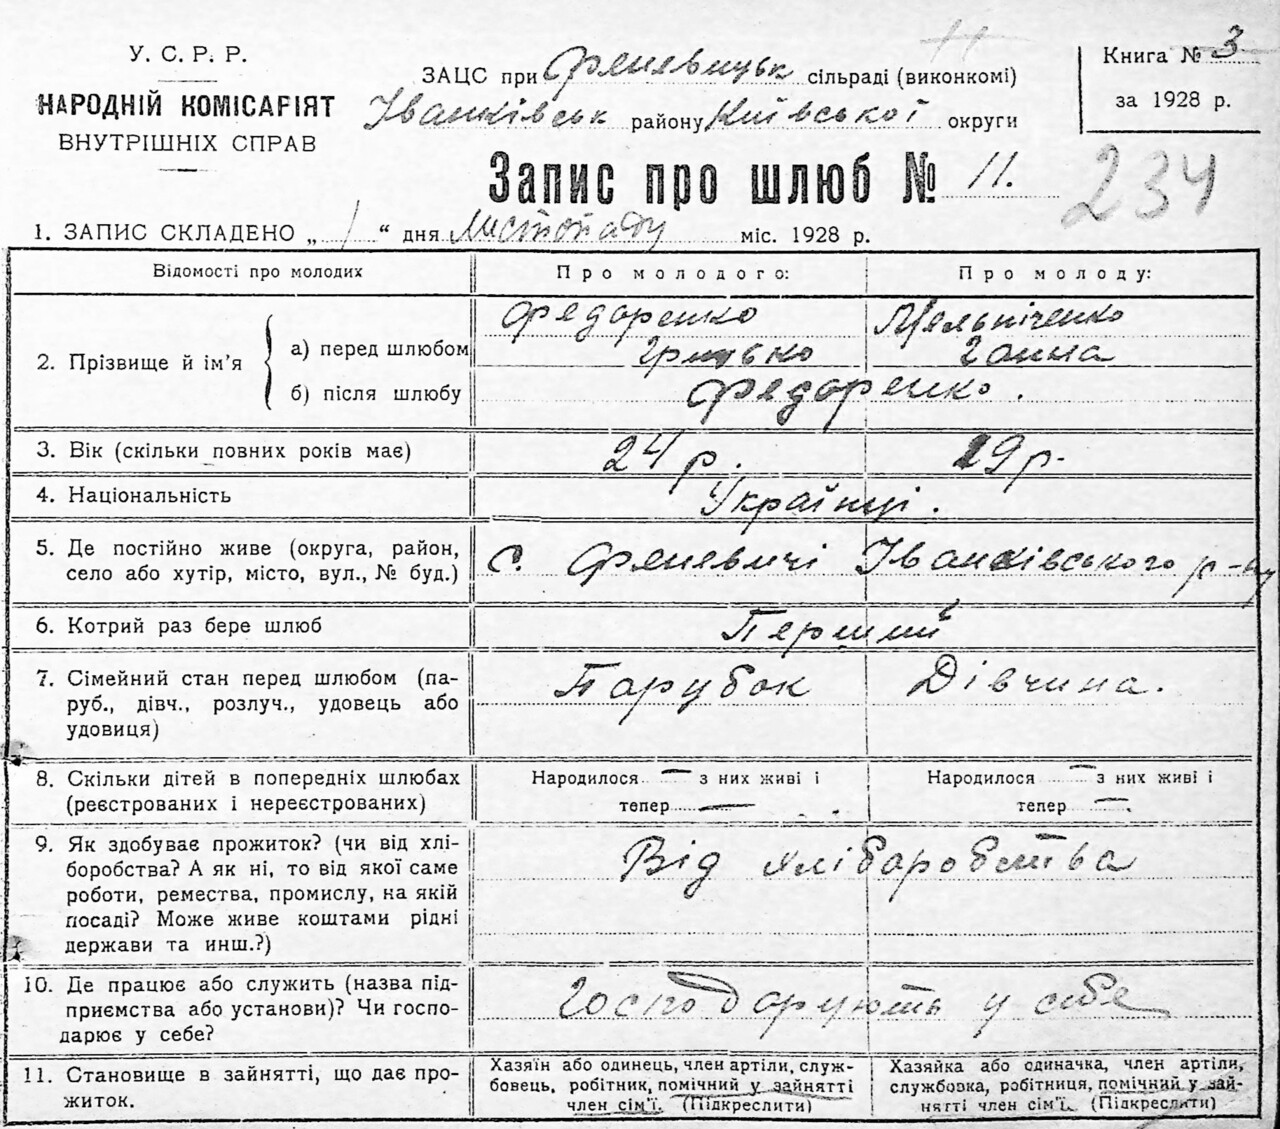 У. С. Р. Р.
НАРОДНІЙ КОМІСАРІЯТ
ВНУТРІШНІХ СПРАВ
ЗАЦС при Феневицьк сільраді (виконкомі)
Іванківськ району Київської округи
Книга № 3
за 1928 р.
Запис про шлюб № 11.
234
1. ЗАПИС СКЛАДЕНО „ 1 “ дня Листопаду міс. 1928 р.
Відомості про молодих
Про молодого:
Про молоду:
2. Прізвище й ім’я
а) перед шлюбом
Федоренко
Грицько
Мельніченко
Ганна
б) після шлюбу
Федоренко.
3. Вік (скільки повних років має)
24 р.
19 р.
4. Національність
Українці.
5. Де постійно живе (округа, район,
село або хутір, місто, вул., № буд.)
с. Феневичі Іванківського р-ну
6. Котрий раз бере шлюб
Перший
7. Сімейний стан перед шлюбом (па-
руб., дівч., розлуч., удовець або
удовиця)
Парубок
Дівчина.
8. Скільки дітей в попередніх шлюбах
(реєстрованих і нереєстрованих)
Народилося — з них живі і
тепер —
Народилося — з них живі і
тепер —.
9. Як здобуває прожиток? (чи від хлі-
боробства? А як ні, то від якої саме
роботи, ремества, промислу, на якій
посаді? Може живе коштами рідні
держави та инш.?)
Від хліборобства
10. Де працює або служить (назва під-
приємства або установи)? Чи госпо-
дарює у себе?
Господарують у себе
11. Становище в зайнятті, що дає про-
житок.
Хазяїн або одинець, член артілі, служ-
бовець, робітник, помічний у зайнятті
член сім’ї. (Підкреслити)
Хазяйка або одиначка, член артіли,
службовка, робітниця, помічний у зай-
нятті член сім’ї. (Підкреслити)